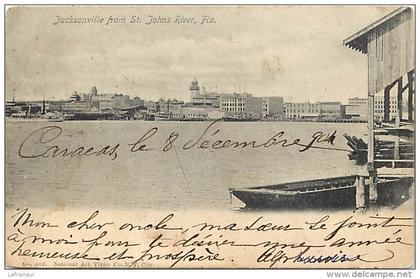 Jacksonville from St. John's River, Fla.
Caracas, le 8 décembre 904
Mon cher oncle, ma sœur se joint
à moi pour te désirer une année
heureuse et prospère. Alphonsine
National Art Views Co. N.Y. City.
delcampe.net